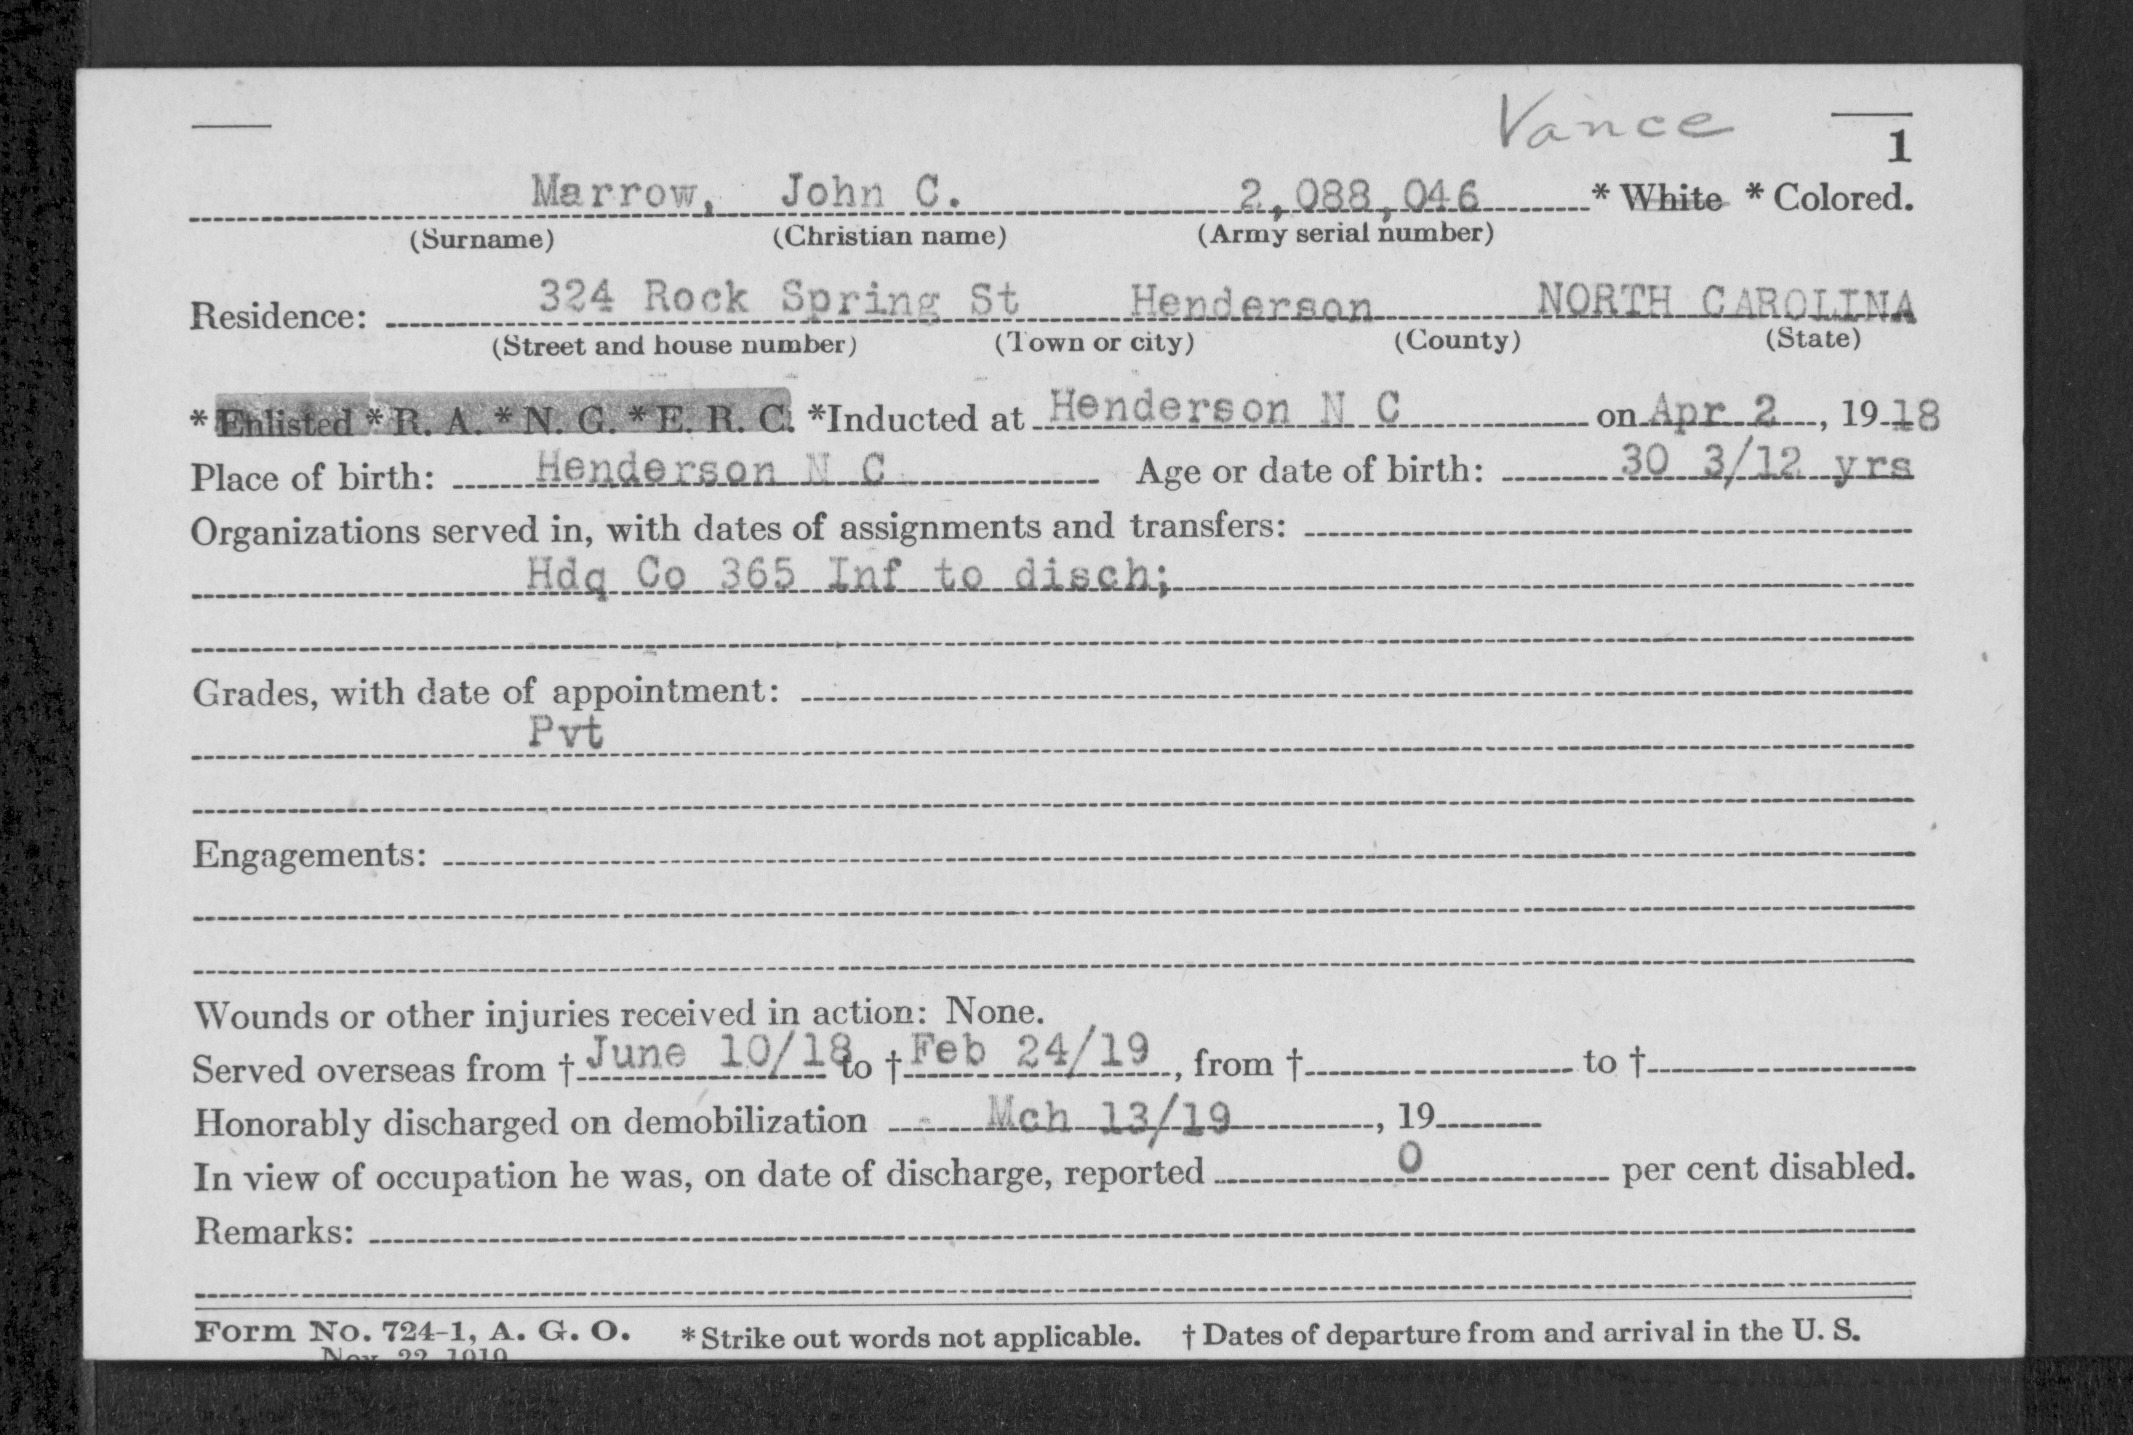 Vance
1
Marrow, John C. 2,088,046 * White * Colored.
(Surname) (Christian name) (Army serial number)
Residence: 324 Rock Spring St Henderson NORTH CAROLINA
(Street and house number) (Town or city) (County) (State)
* Enlisted * R. A. * N. G. * E. R. C. *Inducted at Henderson N C on Apr 2, 1918
Place of birth: Henderson N C Age or date of birth: 30 3/12 yrs
Organizations served in, with dates of assignments and transfers:
Hdq Co 365 Inf to disch;
Grades, with date of appointment:
Pvt
Engagements:
Wounds or other injuries received in action: None.
Served overseas from † June 10/18 to † Feb 24/19, from † to †
Honorably discharged on demobilization Mch 13/19, 19
In view of occupation he was, on date of discharge, reported 0 per cent disabled.
Remarks:
Form No. 724-1, A. G. O. * Strike out words not applicable. † Dates of departure from and arrival in the U. S.
Nov. 22, 1919